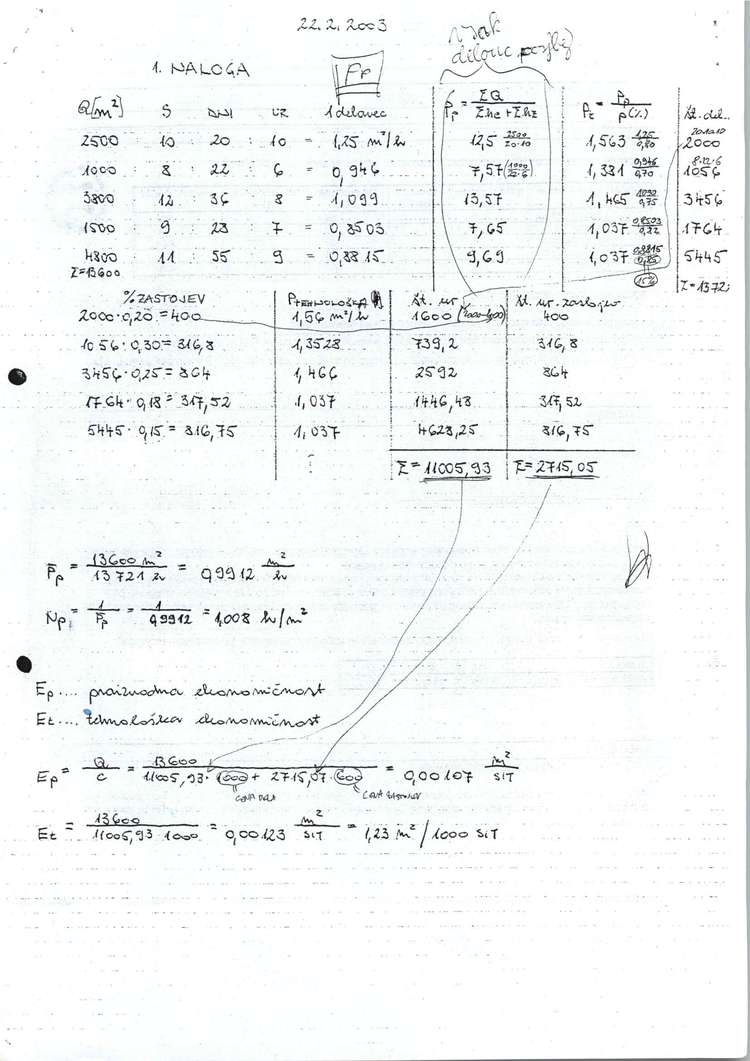 22.2.2003
vsak
delavec posebej
1. NALOGA
Pp
Q[m²] S DNI UR 1 delavec P̄p = ΣQ / Σhe + Σhz Pt = Pp / p(%) Št. del.
2500 : 10 : 20 : 10 = 1,25 m²/h 12,5 2500/20·10 1,563 1,25/0,80 20·10·10 2000
1000 : 8 : 22 : 6 = 0,946 7,57 (1000/22·6) 1,351 0,946/0,70 8·22·6 1056
3800 12 : 36 8 = 1,099 13,57 1,465 /0,75 3456
1500 : 9 : 28 : 7 = 0,8503 7,65 1,037 0,8503/0,82 1764
4800 : 11 : 55 : 9 = 0,8815 9,69 1,037 0,8815/0,85 5445
Σ=13600 15% Σ=1372
% ZASTOJEV PTEHNOLOŠKA Št. ur Št. ur. zastojev
2000·0,20 = 400 1,56 m²/h 1600 (2000-400) 400
1056·0,30 = 316,8 1,3528 739,2 316,8
3456·0,25 = 864 1,466 2592 864
1764·0,18 = 317,52 1,037 1446,48 317,52
5445·0,15 = 816,75 1,037 4628,25 816,75
Σ = 11005,93 Σ = 2715,05
P̄p = 13600 m² / 13721 h = 0,9912 m²/h
Np = 1/P̄p = 1/0,9912 = 1,008 h/m²
Ep .... proizvodna ekonomičnost
Et .... tehnološka ekonomičnost
Ep = Q/C = 13600 / 11005,93·1000 + 2715,07·600 = 0,00107 m²/SIT
CENA DELA CENA ZASTOJEV
Et = 13600 / 11005,93·1000 = 0,00123 m²/SIT = 1,23 m²/1000 SIT